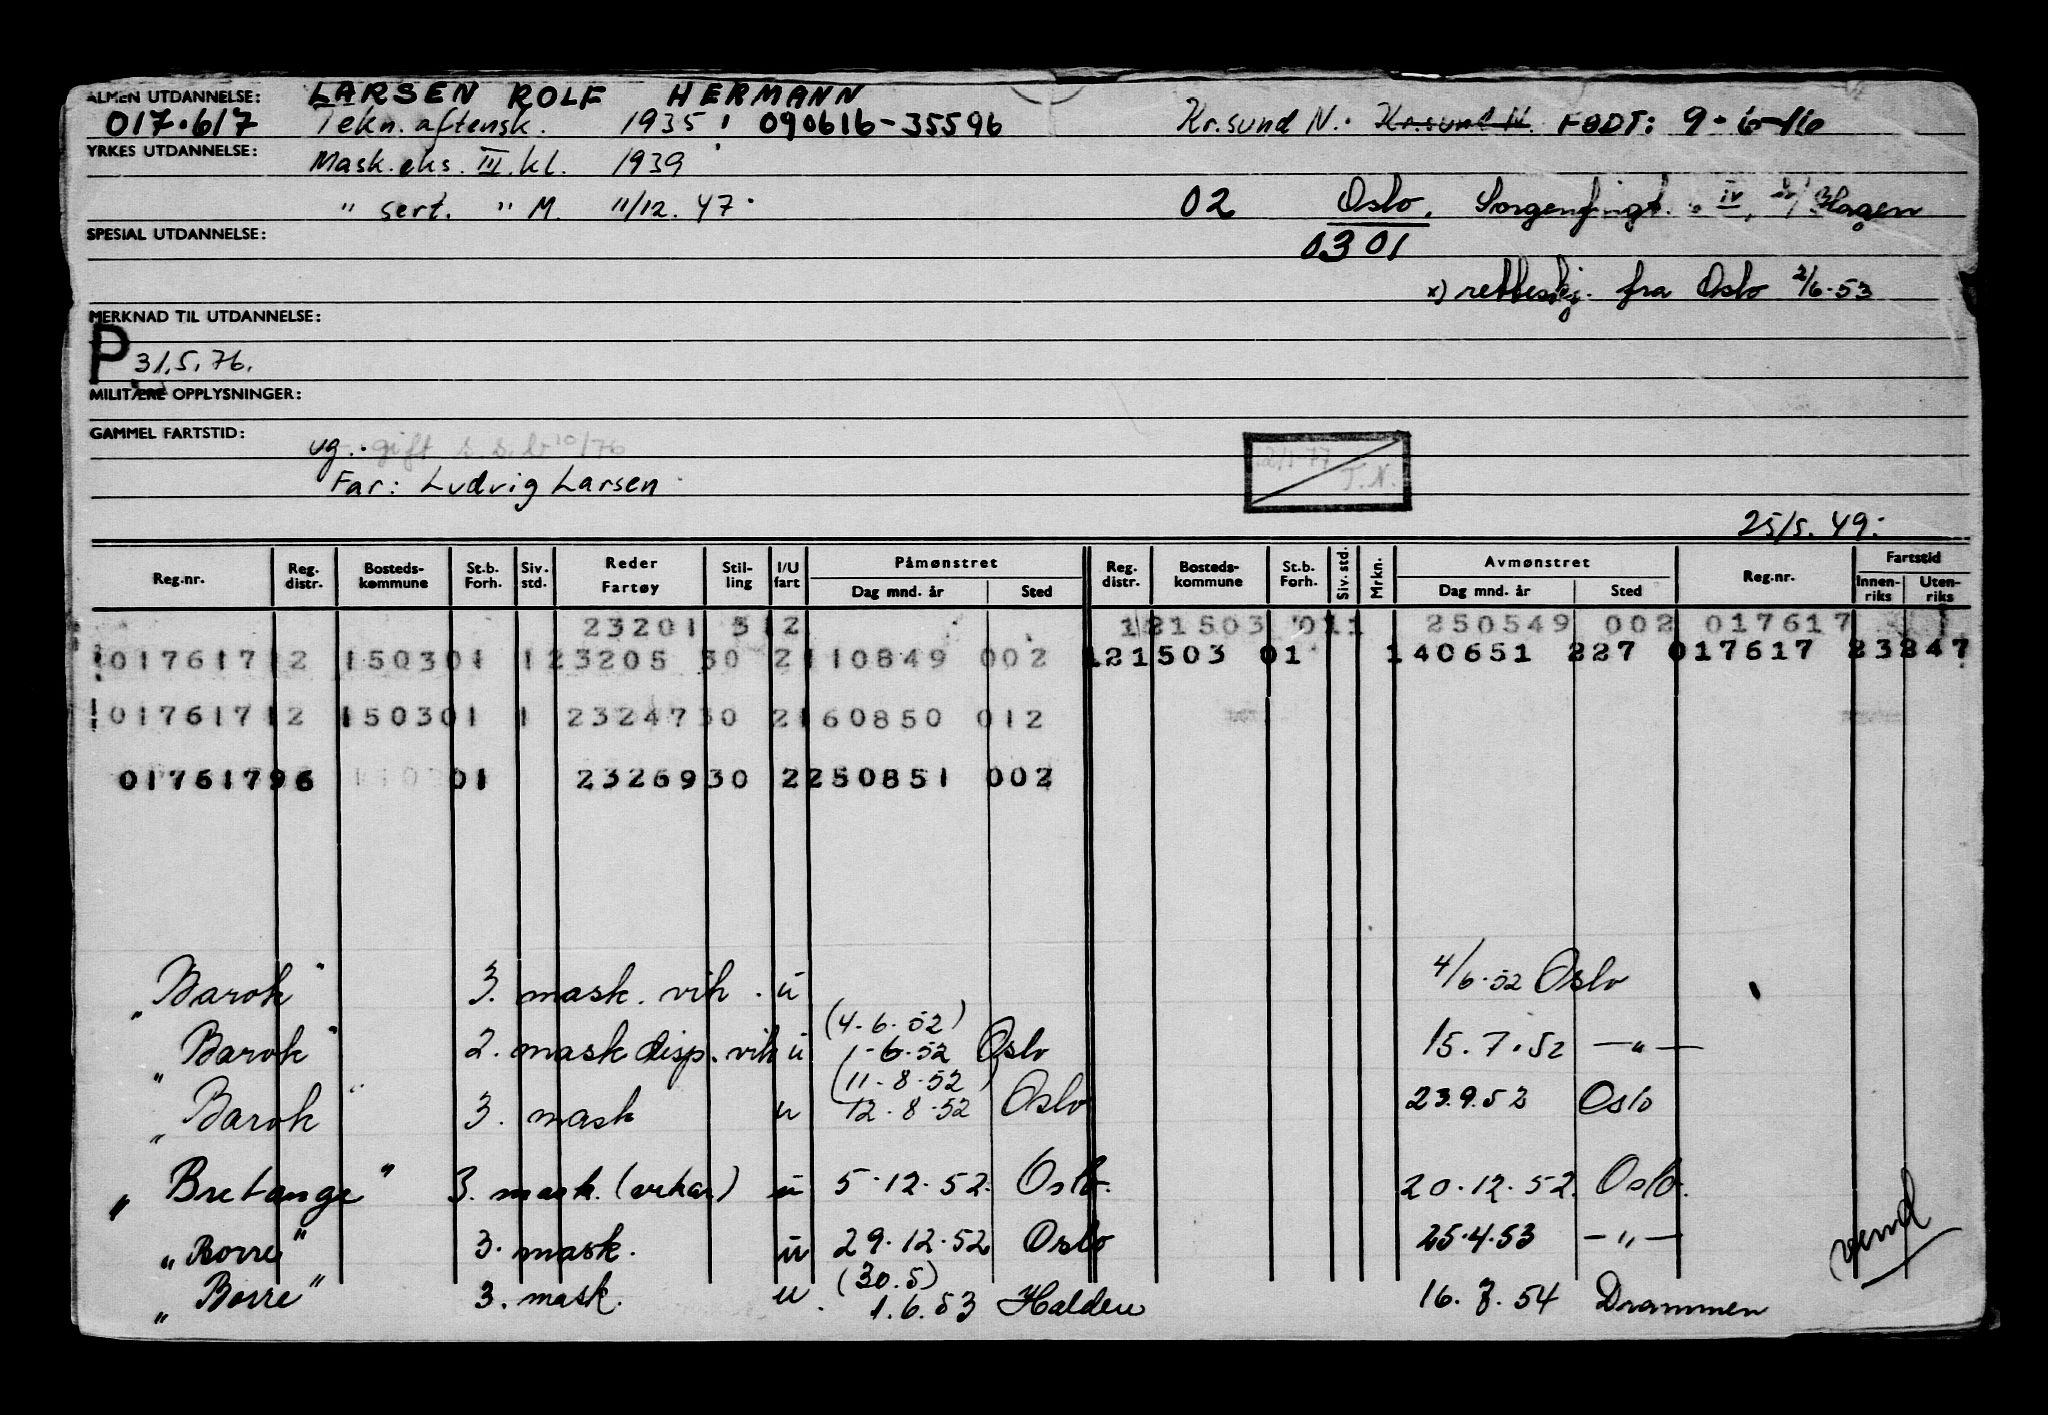 ALMEN UTDANNELSE: LARSEN ROLF HERMANN
017.617 Tekn. aftensk. 1935. 090616-35596 Kr.sund N. Kr.sund N. FØDT: 9-6-16
YRKES UTDANNELSE: Mask.eks. III.kl. 1939
" sert. " M. 11/12.47. 02 Oslo. IV, Hagen
SPESIAL UTDANNELSE: 0301
x) fra Oslo 2/6.53
MERKNAD TIL UTDANNELSE:
P 31.5.76.
MILITÆRE OPPLYSNINGER:
GAMMEL FARTSTID: ug. gift
Far: Ludvig Larsen T.N.
25/5.49.
Reg.nr. Reg. distr. Bosteds-kommune St.b. Forh. Siv. std. Reder Fartøy Stil-ling I/U fart Påmønstret Dag mnd. år Sted Reg. distr. Bosteds-kommune St.b. Forh. Siv. std. Mrkn. Avmønstret Dag mnd. år Sted Reg.nr. Fartstid Innen-riks Uten-riks
23201 312 121503 011 250549 002 017617
017617 12 150301 1 23205 30 2 110849 002 121503 01 140651 227 017617 23247
017617 12 150301 1 23247 30 2 160850 012
017617 96 01 23269 30 2 250851 002
"Barok" 3. mask. vik. u 4/6.52 Oslo
"Barok" 2. mask disp. vik u (4.6.52) 1-6.52 Oslo 15.7.52 —"—
"Barok" 3. mask u (11-8-52) 12.8.52 Oslo 23.9.52 Oslo
"Bretange" 3. mask. (vikar) u 5.12.52. Oslo. 20.12.52. Oslo.
"Borre" 3. mask. u 29.12.52 Oslo 25.4.53 —"—
"Borre" 3. mask. u. (30.5) 1.6.53 Halden 16.3.54 Drammen
vend